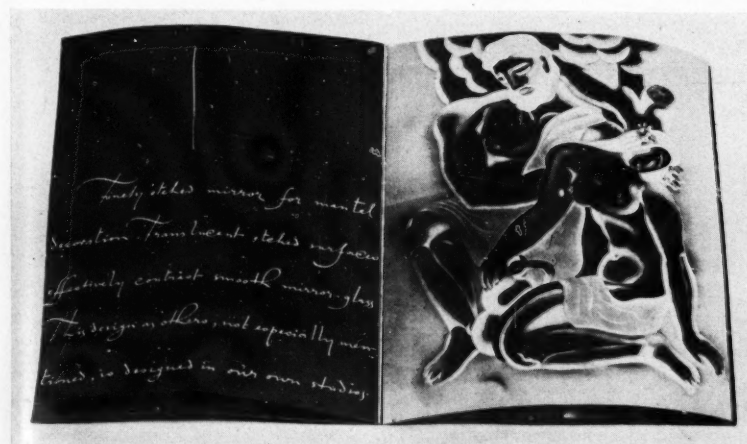 Finely etched mirror for mantel
decoration. Translucent, etched surfaces
effectively contrast smooth mirror-glass.
This design as others, not especially men-
tioned, is designed in our own studios.